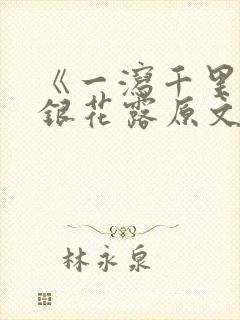 《一泻千里
银花露原文
林永泉